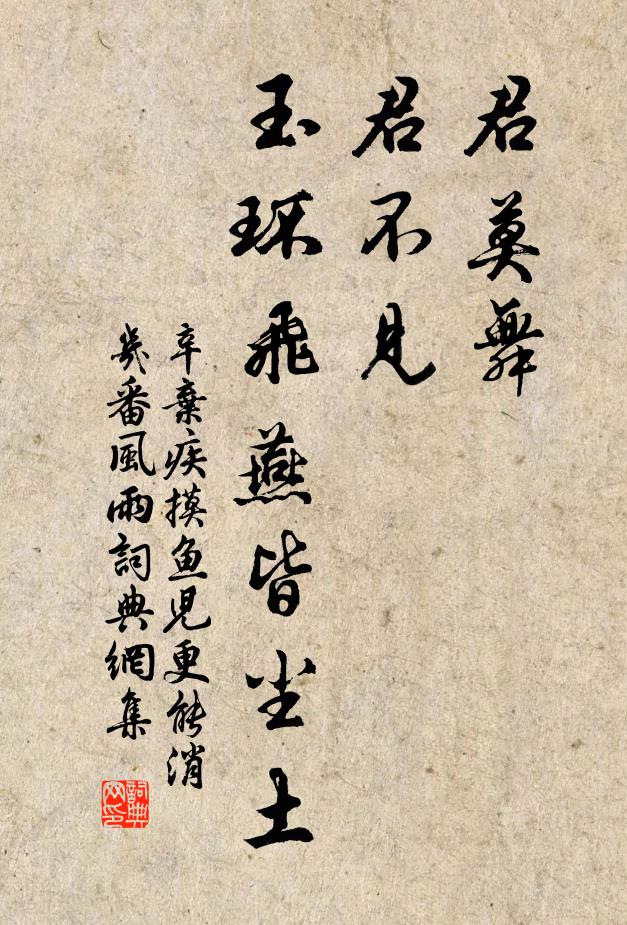 君莫舞
君不见
玉环飛燕皆尘土
辛棄疾摸鱼児更能消
幾番風雨詞典網集
詞典网印